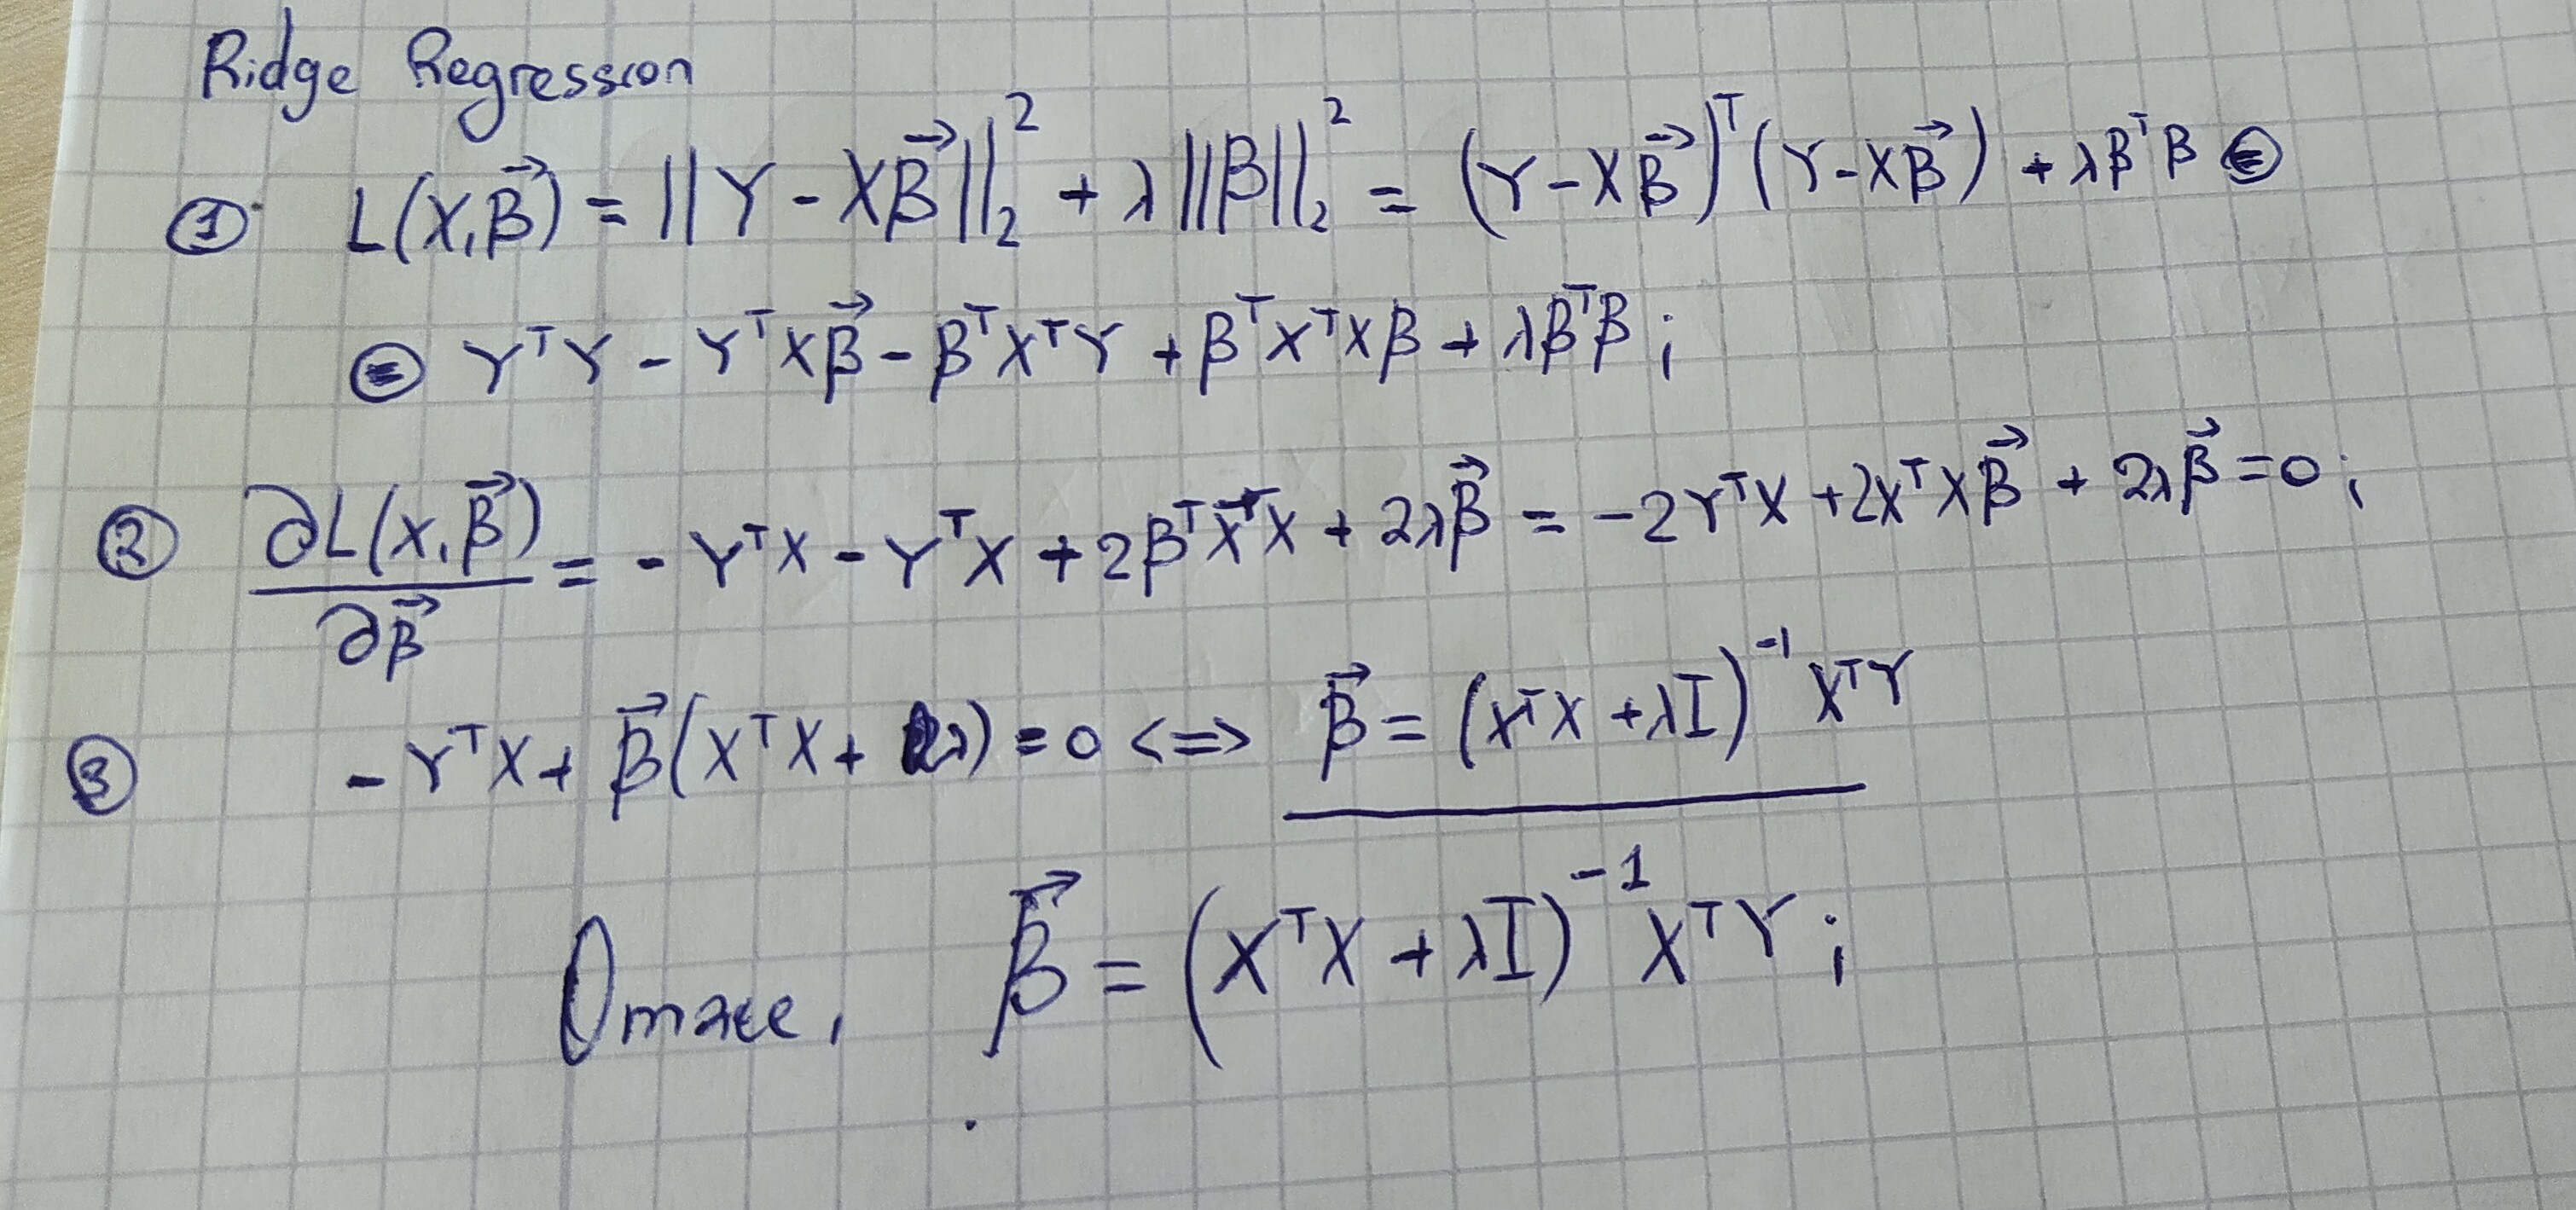 Ridge Regression
① L(X,β⃗) = ||Y - Xβ⃗||₂² + λ||β||₂² = (Y - Xβ⃗)ᵀ(Y - Xβ⃗) + λβᵀβ ⊜
⊜ YᵀY - YᵀXβ⃗ - βᵀXᵀY + βᵀXᵀXβ + λβᵀβ;
② ∂L(X,β⃗)/∂β⃗ = - YᵀX - YᵀX + 2βᵀXᵀX + 2λβ⃗ = -2YᵀX + 2XᵀXβ⃗ + 2λβ⃗ = 0;
③ - YᵀX + β⃗(XᵀX + λ) = 0 <=> β⃗ = (XᵀX + λI)⁻¹XᵀY
Отже, β⃗ = (XᵀX + λI)⁻¹XᵀY;